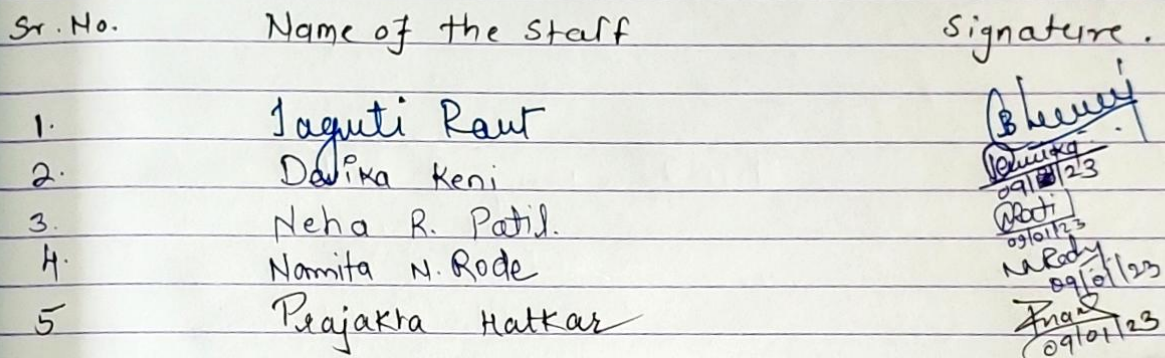 Sr. No. Name of the Staff Signature.
1. Jaguti Raut
2. Devika Keni 09/01/23
3. Neha R. Patil. 09/01/23
4. Namita N. Rode 09/01/23
5 Prajakta Hatkar 09/01/23